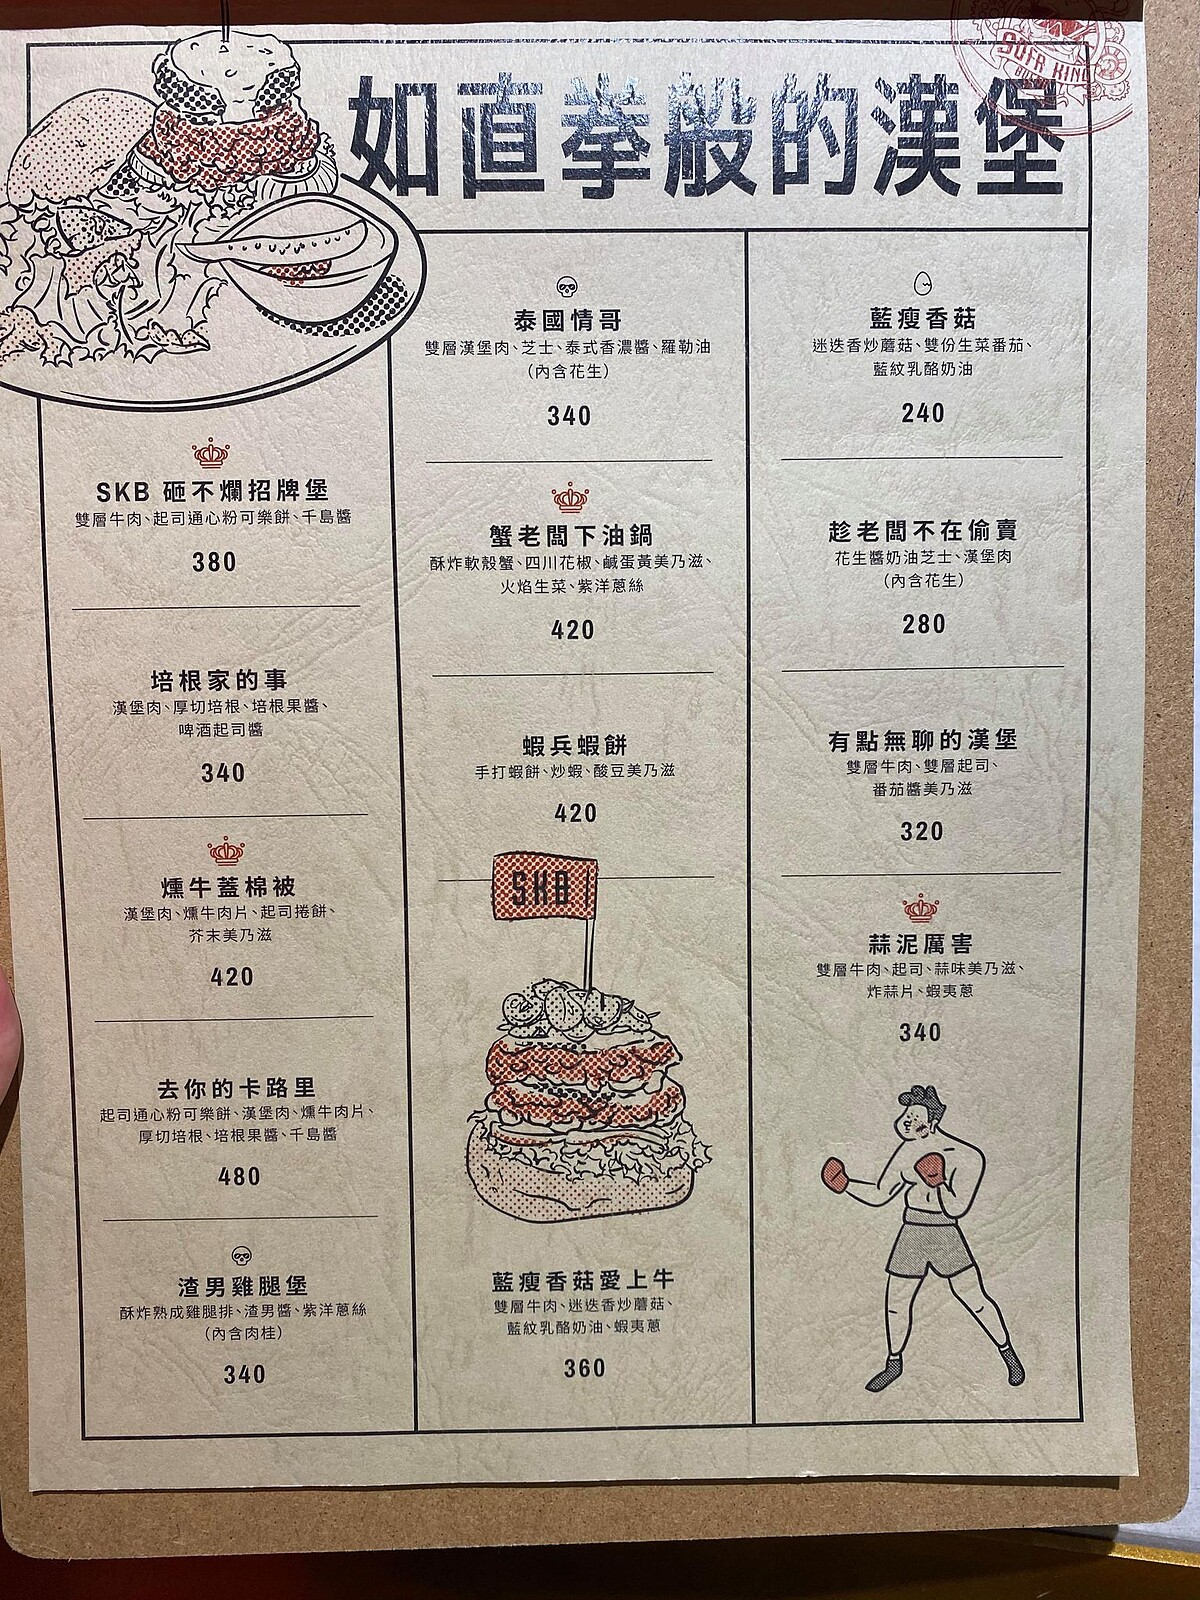 如直拳般的漢堡
SOFA KING
SKB 砸不爛招牌堡
雙層牛肉、起司通心粉可樂餅、千島醬
380
培根家的事
漢堡肉、厚切培根、培根果醬、
啤酒起司醬
340
燻牛蓋棉被
漢堡肉、燻牛肉片、起司捲餅、
芥末美乃滋
420
去你的卡路里
起司通心粉可樂餅、漢堡肉、燻牛肉片、
厚切培根、培根果醬、千島醬
480
渣男雞腿堡
酥炸熟成雞腿排、渣男醬、紫洋蔥絲
(內含肉桂)
340
泰國情哥
雙層漢堡肉、芝士、泰式香濃醬、羅勒油
(內含花生)
340
蟹老闆下油鍋
酥炸軟殼蟹、四川花椒、鹹蛋黃美乃滋、
火焰生菜、紫洋蔥絲
420
蝦兵蝦餅
手打蝦餅、炒蝦、酸豆美乃滋
420
SKB
藍瘦香菇愛上牛
雙層牛肉、迷迭香炒蘑菇、
藍紋乳酪奶油、蝦夷蔥
360
藍瘦香菇
迷迭香炒蘑菇、雙份生菜番茄、
藍紋乳酪奶油
240
趁老闆不在偷賣
花生醬奶油芝士、漢堡肉
(內含花生)
280
有點無聊的漢堡
雙層牛肉、雙層起司、
番茄醬美乃滋
320
蒜泥厲害
雙層牛肉、起司、蒜味美乃滋、
炸蒜片、蝦夷蔥
340